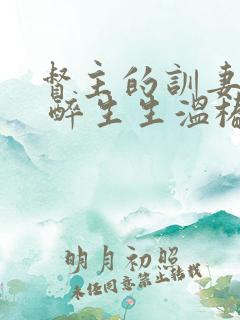 督主的訓妻
醉生生溫
明月初照
未经同意禁止转载